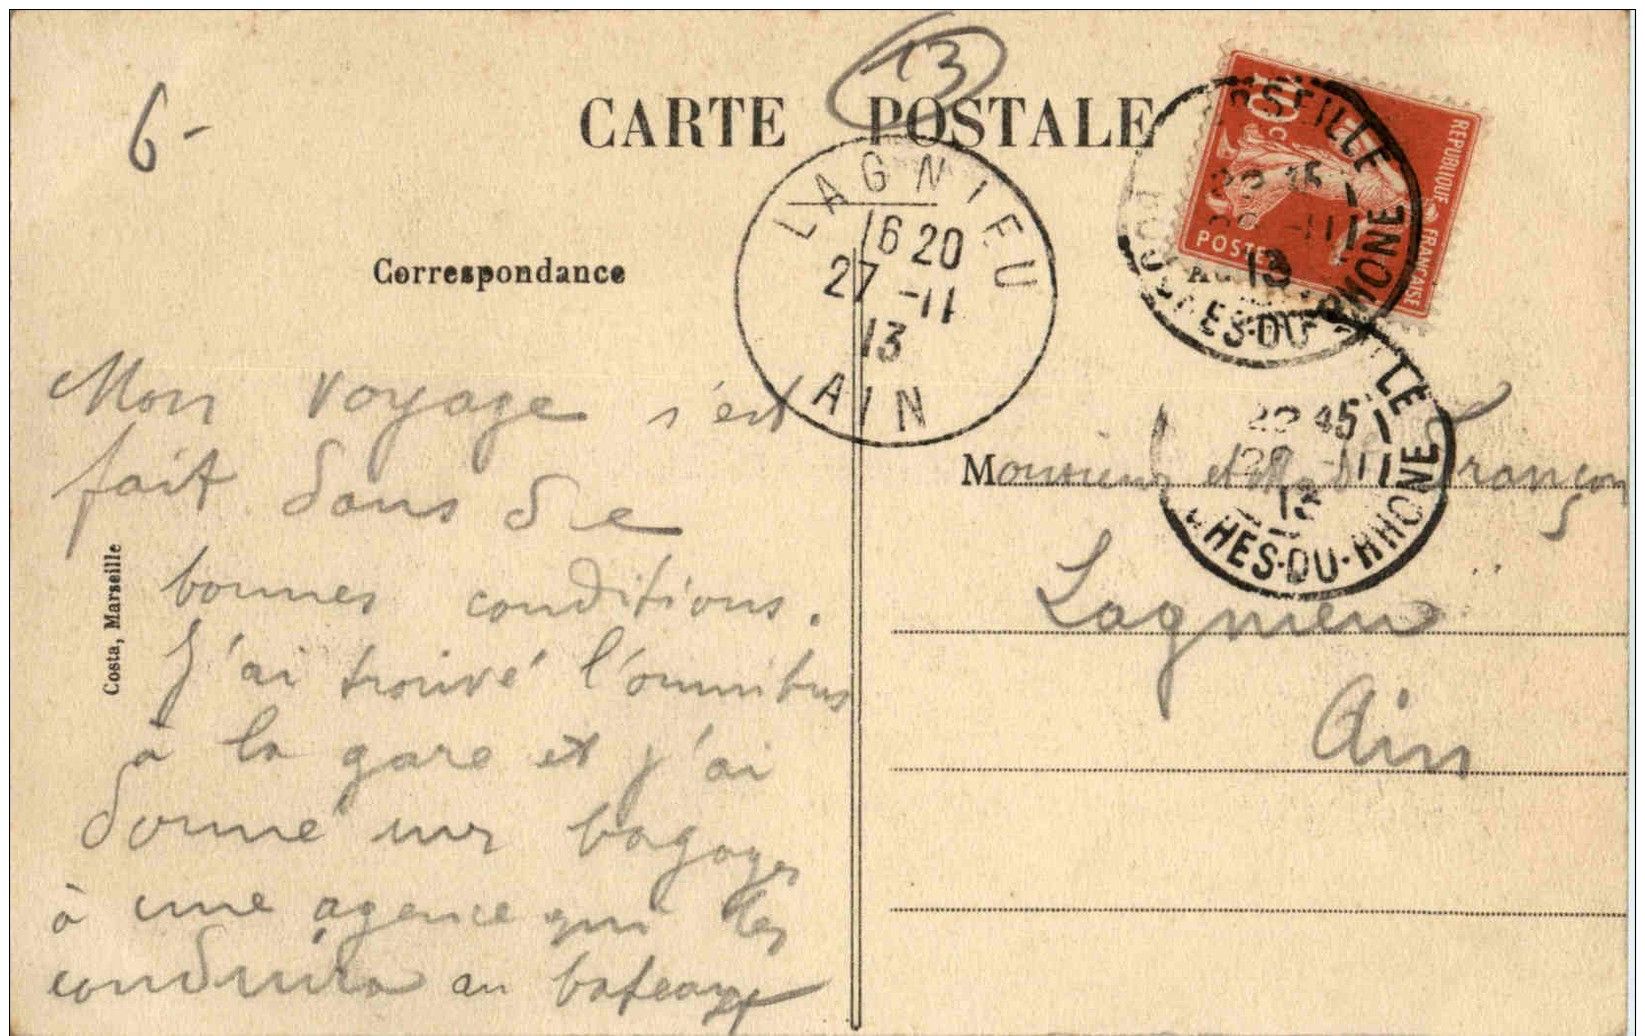 13
6-
CARTE POSTALE
Correspondance
LAGNIEU
16 20
27 -11
13
AIN
RÉPUBLIQUE FRANÇAISE
10 c
POSTES
22 45
-11
13
BOUCHES-DU-RHONE
22 45
-11
13
CHES-DU-RHONE
Mon voyage s'est
fait dans de
bonnes conditions.
J'ai trouvé l'omnibus
à la gare et j'ai
donné mes bagages
à une agence qui les
conduira au bateau
Costa, Marseille
Monsieur et Françon
Lagnieu
Ain